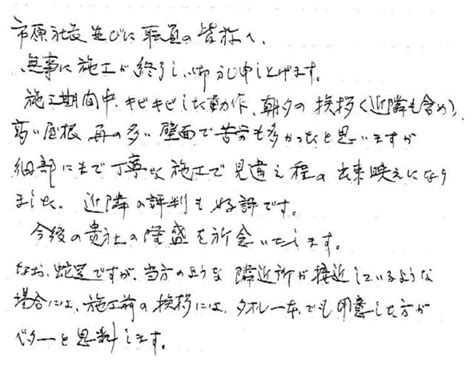 市原社長並びに職員の皆様へ、
無事に施工が終了し、御礼申し上げます。
施工期間中、キビキビした動作、朝夕の挨拶(近隣も含め)、
高い屋根、面の多い壁面で苦労も多かったと思いますが
細部にまで丁寧な施工で見違える程の出来映えになり
ました。近隣の評判も好評です。
今後の貴社の隆盛を祈念いたします。
なお、蛇足ですが、当方のような隣近所が接近しているような
場合には、施工前の挨拶には、タオル一本でも用意した方が
ベターと思料します。